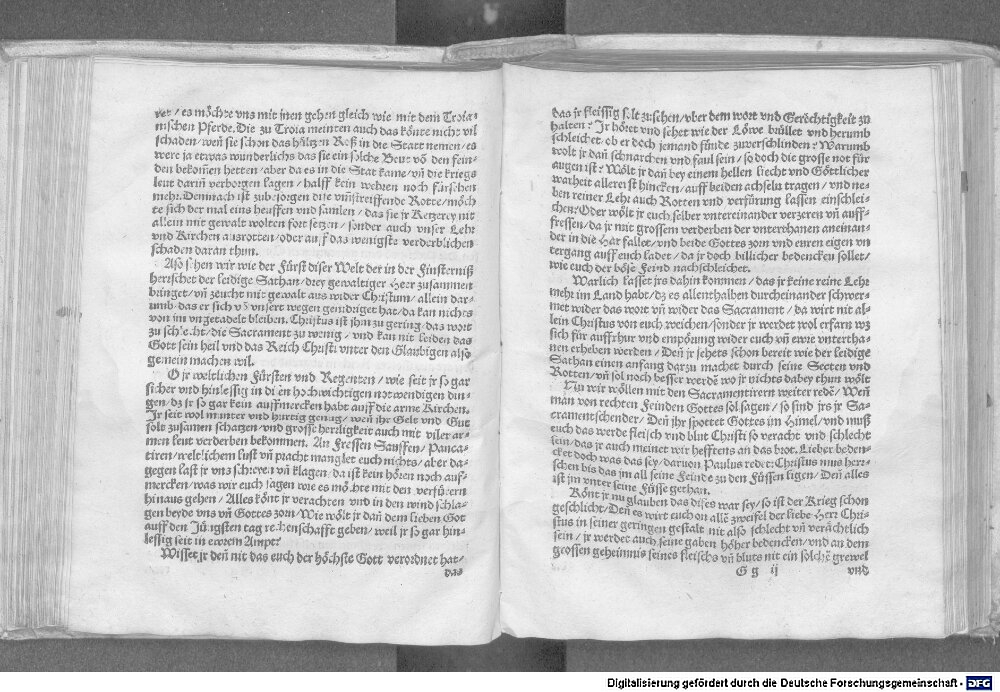 ret / es möchte vns mit jnen gehen gleich wie mit dem Troia-
nischen Pferde. Die zu Troia meinten auch das könte nicht vil
schaden / weñ sie schon das hültzen Roß in die Statt nemen / es
were ja etwas wunderlichs das sie ein solche Beut võ den fein-
den bekom̃en hetten / aber da es in die Stat kame / vñ die kriegs
leut darin̄ verborgen lagen / halff kein wehren noch fürsehen
mehr. Demnach ist zubesorgen dise vm̃streiffende Rotte / möch
te sich der mal eins heuffen vnd samlen / das sie jr Ketzerey nit
allein mit gewalt wolten fort setzen / sonder auch vnser Lehr
vnd Kirchen ausrotten / oder auff das wenigste verderblichen
schaden daran thun.
Also sehen wir wie der Fürst diser Welt der in der Finsterniß
herrschet der leidige Sathan / drey gewaltiger Heer zusammen
bringet / vñ zeucht mit gewalt aus wider Christum / allein dar-
umb das er sich võ vnsert wegen genidriget hat / da kan nichts
von im vngetadelt bleiben. Christus ist jhm zu gering / das wort
zu schlecht / die Sacrament zu wenig / vnd kan nit leiden das
Gott sein heil vnd das Reich Christi vnter den Glaubigen also
gemein machen wil.
O jr weltlichen Fürsten vnd Regenten / wie seit jr so gar
sicher vnd hinlessig in disen hochwichtigen notwendigen din-
gen / dz jr so gar kein auffmercken habt auff die arme Kirchen.
Jr seit wol munter vnd hurtig genug / weñ jhr Gelt vnd Gut
solt zusamen schatzen / vnd grosse herrligkeit auch mit viler ar-
men leut verderben bekommen. An Fressen Sauffen / Panca-
tiren / weltlichem lust vñ pracht manglet euch nichts / aber da-
gegen last jr vns schreyen vñ klagen / da ist kein hören noch auf-
mercken / was wir euch sagen wie es möchte mit den verfürern
hinaus gehen / Alles könt jr verachten vnd in den wind schla-
gen beyde vns vñ Gottes zorn / Wie wölt jr dañ dem lieben Got
auff den Jüngsten tag rechenschafft geben / weil jr so gar hin-
lessig seit in ewrem Ampt?
Wisset jr deñ nit das euch der höchste Gott verordnet hat /
das
das jr fleissig solt zusehen / vber dem wort vnd Gerechtigkeit zu
halten? Jr höret vnd sehet wie der Löwe brüllet vnd herumb
schleichet / ob er doch jemand fünde zuverschlinden? Warumb
wolt jr dañ schnarchen vnd faul sein / so doch die grosse not für
augen ist? Wölt jr dañ bey einem hellen liecht vnd Göttlicher
warheit allererst hincken / auff beiden achseln tragen / vnd ne-
ben reiner Lehr auch Rotten vnd verfürung lassen einschlei-
chen? Oder wölt jr euch selber vntereinander verzeren vñ auff-
fressen / da jr mit grossem verderben der vnterthanen aneinan-
der in die Har fallet / vnd beide Gottes zorn vnd euren eigen vn
tergang auff euch ladet / da jr doch billicher bedencken soltet /
wie euch der böse Feind nachschleichet.
Warlich lasset jrs dahin kommen / das jr keine reine Lehr
mehr im Land habt / dz es allenthalben durcheinander schwer-
met wider das wort vñ wider das Sacrament / da wirt nit al-
lein Christus von euch weichen / sonder jr werdet wol erfarn wz
sich für auffrhur vnd empörung wider euch vñ ewre vntertha-
nen erheben werden / Deñ jr sehets schon bereit wie der leidige
Sathan einen anfang darzu machet durch seine Secten vnd
Rotten / vñ sol noch besser werdẽ wo jr nichts dabey thun wölt
Nu wir wöllen mit den Sacramentirern weiter redẽ / Weñ
man von rechten Feinden Gottes sol sagen / so sind jrs jr Sa-
cramentschender / Deñ jhr spottet Gottes im Himel / vnd muß
euch das werde fleisch vnd blut Christi so veracht vnd schlecht
sein / das jr auch meinet wir hefftens an das brot. Lieber beden-
cket doch was das sey / daruon Paulus redet: Christus mus herr-
schen bis das jm all seine Feinde zu den Füssen ligen / Deñ alles
ist jm vnter seine Füsse gethan.
Könt jr nu glauben das dises war sey / so ist der Krieg schon
geschlicht / Deñ es wirt euch on allẽ zweifel der liebe Herr Chri-
stus in seiner geringen gestalt nit also schlecht vñ verächtlich
sein / jr werdet auch seine gaben höher bedencken / vnd an dem
grossen geheimnis seines fleischs vñ bluts nit ein solchẽ grewel
G g ij vnd
Digitalisierung gefördert durch die Deutsche Forschungsgemeinschaft - DFG